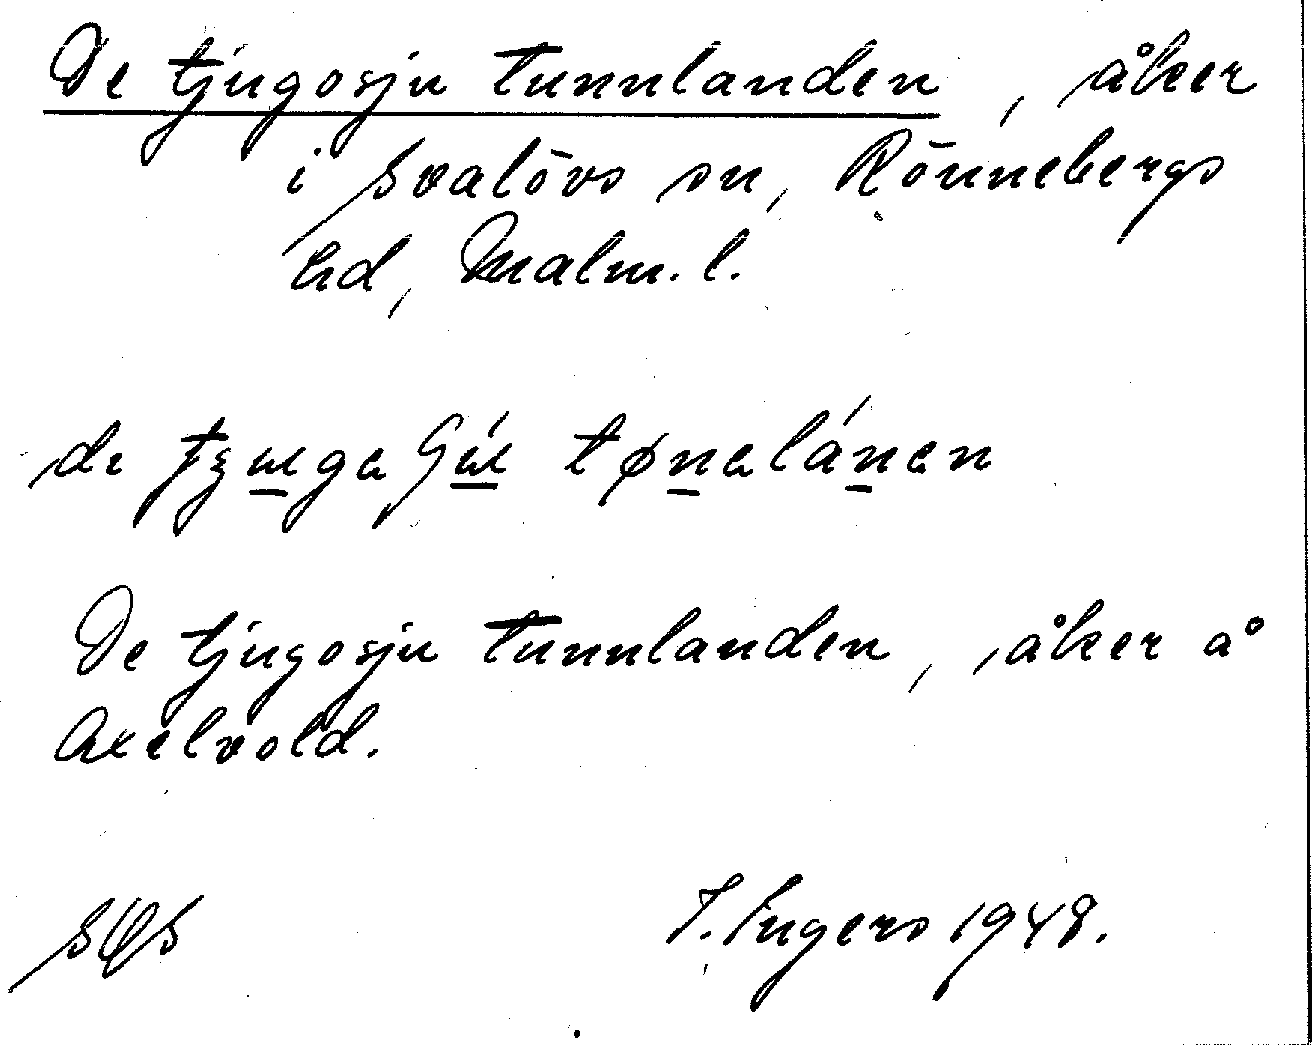 De tjugosju tunnlanden, åker
i Svalövs sn, Rönnebergs
hd, Malm. l.
tønalánen
De tjugosju tunnlanden, åker å
Axelvold.
I. Ingers 1948.